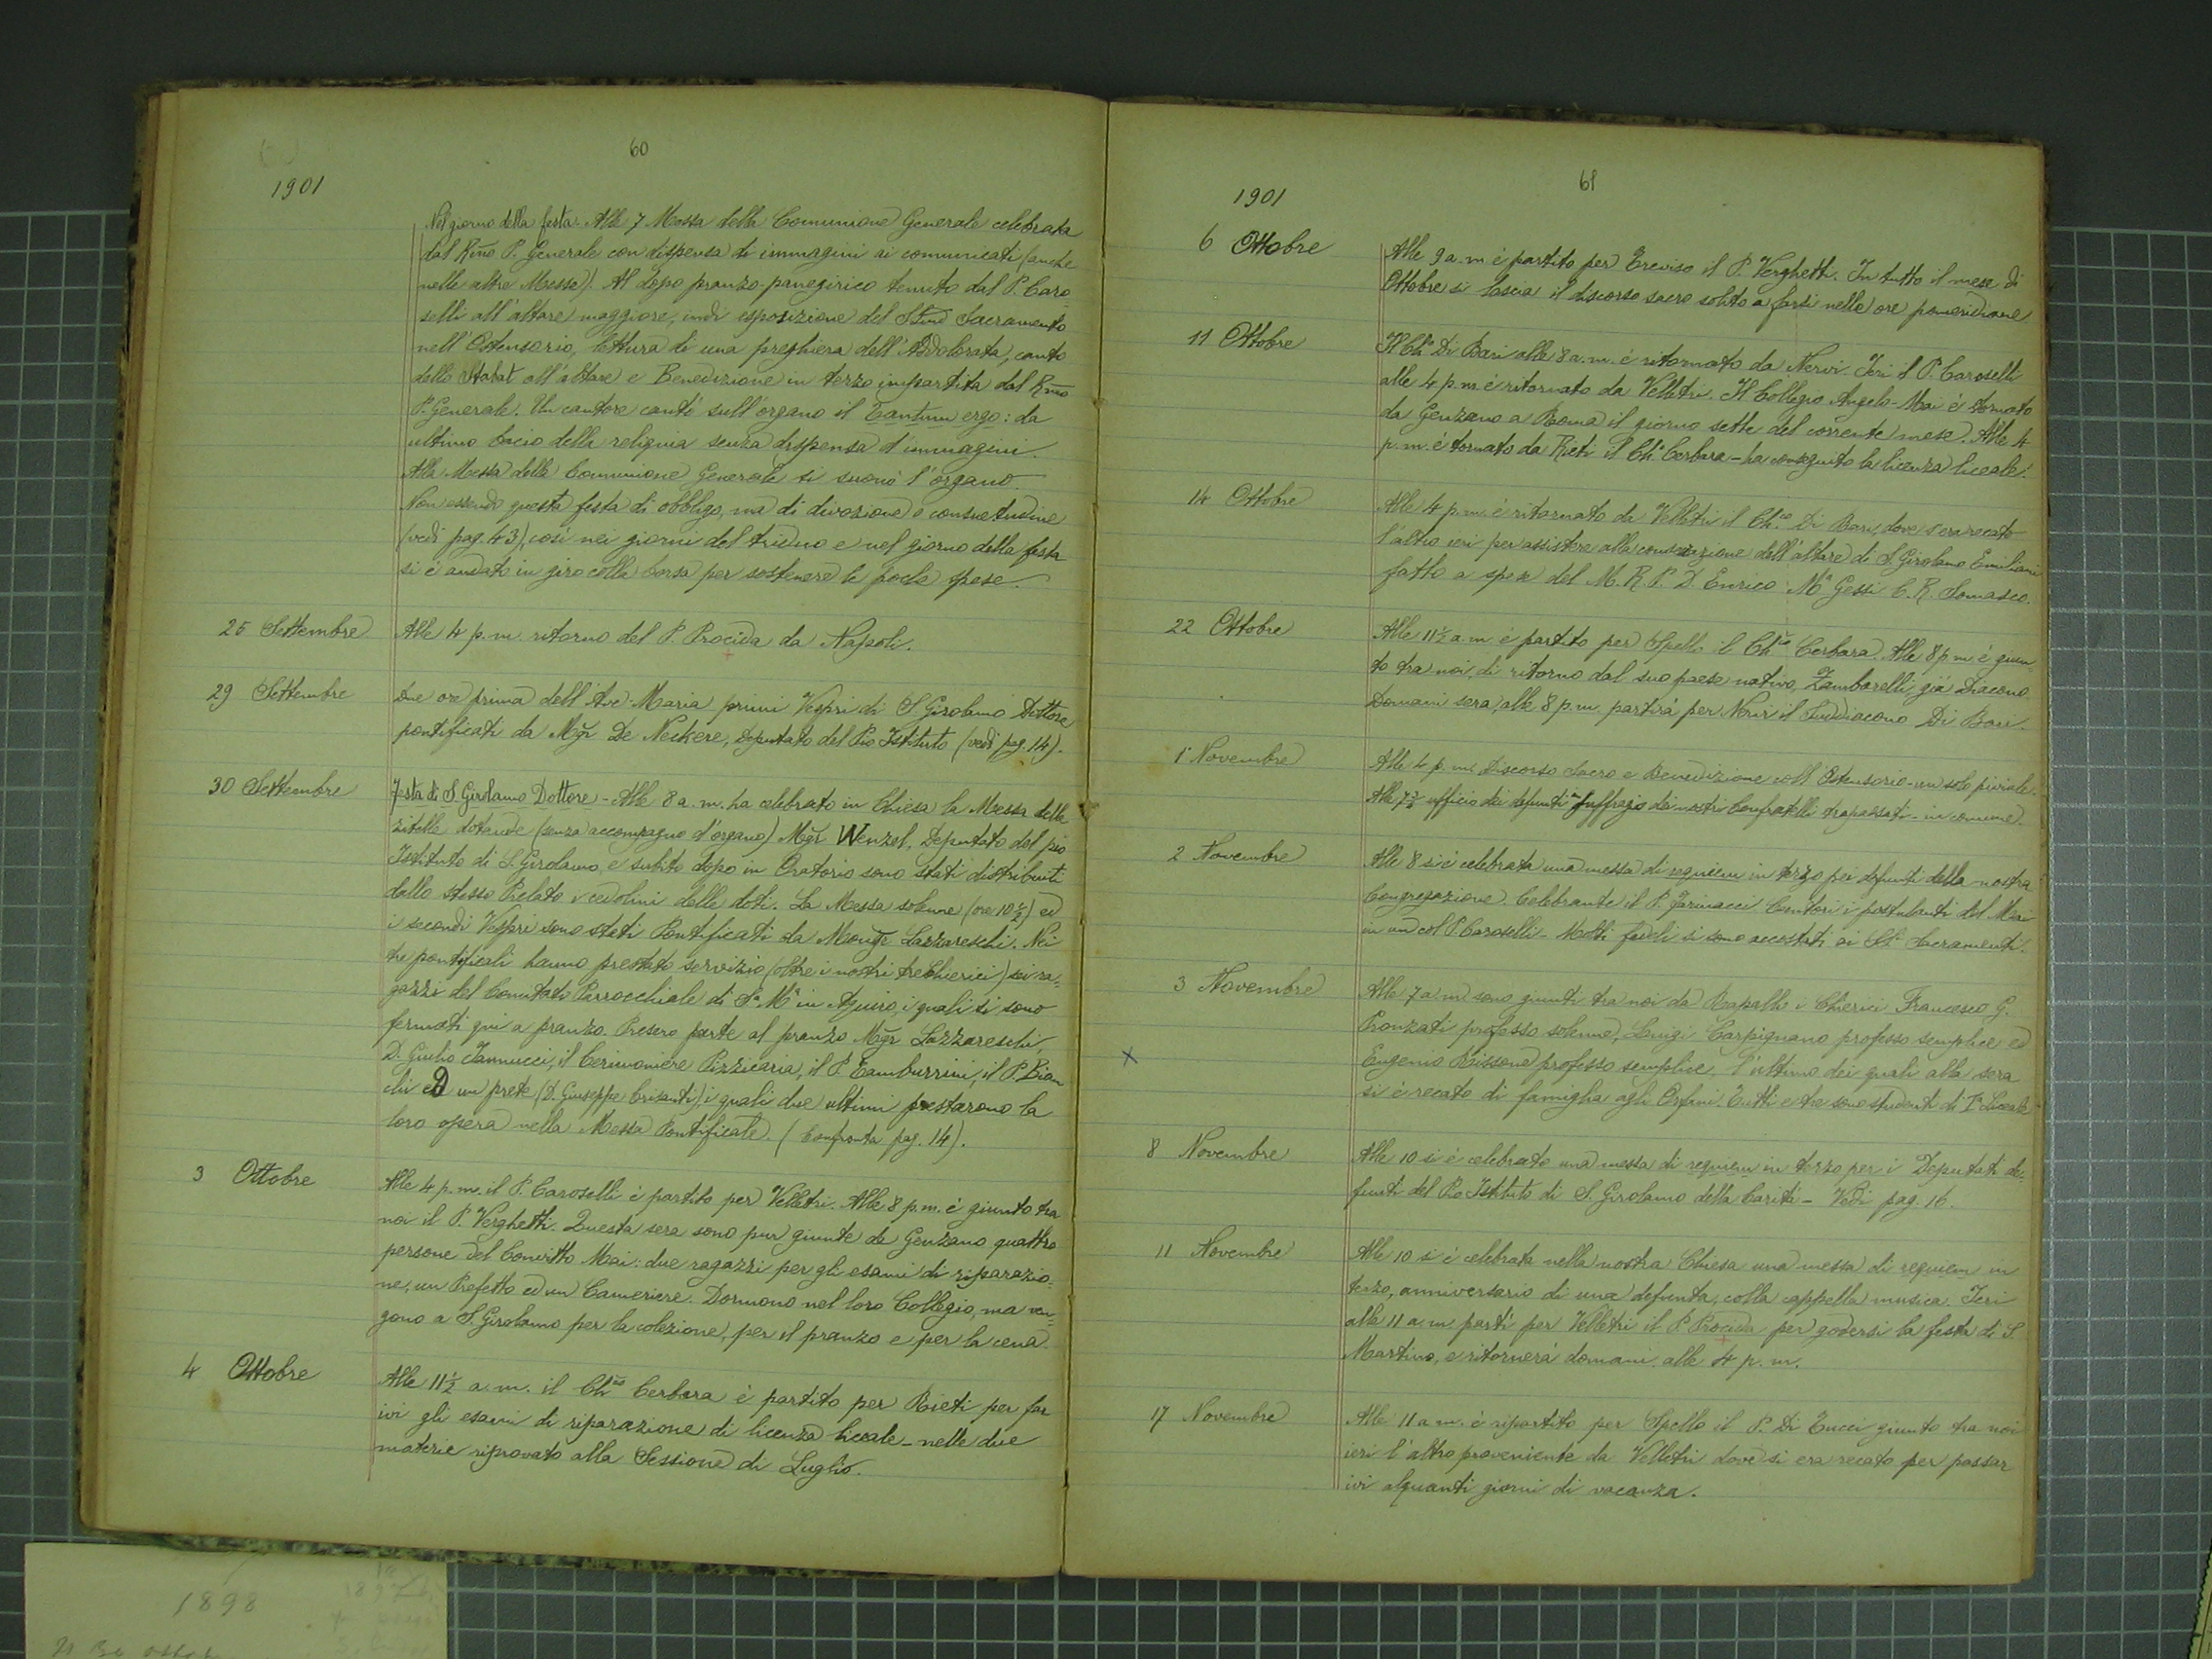 60
1901
Nel giorno della festa - Alle 7 Messa della Comunione Generale celebrata
dal Rmo P. Generale con dispensa di immagini ai comunicati (anche
nelle altre Messe). Al dopo pranzo - panegirico tenuto dal P. Caro
selli all'altare maggiore, indi esposizione del Smo Sacramento
nell'Ostensorio, lettura di una preghiera dell'Addolorata, canto
dello Stabat all'altare e Benedizione in terzo impartita dal Rmo
P. Generale. Un cantore cantò sull'organo il Tantum ergo: da
ultimo bacio della reliquia senza dispensa d'immagini.
Alla Messa della Comunione Generale si suonò l'organo.
Non essendo questa festa di obbligo, ma di divozione e consuetudine
(vedi pag. 43), così nei giorni del triduo e nel giorno della festa
si è andato in giro colla borsa per sostenere le poche spese.
25 Settembre Alle 4 p.m. ritorno del P. Procida da Napoli.
29 Settembre Due ore prima dell'Ave-Maria primi Vespri di S. Girolamo Dottore
pontificati da Mgr De Neckere, Deputato del Pio Istituto (vedi pag. 14).
30 Settembre Festa di S. Girolamo Dottore - Alle 8 a.m. ha celebrato in Chiesa la Messa delle
zitelle dotande (senza accompagno d'organo) Mgr Wenzel, Deputato del pio
Istituto di S. Girolamo, e subito dopo in Oratorio sono stati distribuiti
dallo stesso Prelato i cedolini delle doti. La Messa solenne (ore 10 1/2) ed
i secondi Vespri sono stati Pontificati da Monsr Lazzareschi. Nei
tre pontificali hanno prestato servizio (oltre i nostri tre Chierici) sei ra=
gazzi del Comitato Parrocchiale di Sa Ma in Aquiro, i quali si sono
fermati qui a pranzo. Presero parte al pranzo Mgr Lazzareschi,
D. Giulio Iannucci, il Cerimoniere Pizzicaria, il P. Tamburrini, il P. Bian
chi ed un prete (D. Giuseppe Crisanti), i quali due ultimi prestarono la
loro opera nella Messa Pontificale. (Confronta pag. 14).
3 Ottobre Alle 4 p.m. il P. Caroselli è partito per Velletri. Alle 8 p.m. è giunto tra
noi il P. Verghetti. Questa sera sono pur giunte da Genzano quattro
persone del Convitto Mai: due ragazzi per gli esami di riparazio=
ne, un Prefetto ed un Cameriere. Dormono nel loro Collegio, ma ven=
gono a S. Girolamo per la colezione, per il pranzo e per la cena.
4 Ottobre Alle 11 1/2 a.m. il Chco Cerbara è partito per Rieti per far
ivi gli esami di riparazione di licenza liceale - nelle due
materie riprovato alla Sessione di Luglio.
61
1901
6 Ottobre Alle 9 a.m. è partito per Treviso il P. Verghetti. In tutto il mese di
Ottobre si lascia il discorso sacro solito a farsi nelle ore pomeridiane.
11 Ottobre Il Cho Di Bari alle 8 a.m. è ritornato da Nervi. Ieri il P. Caroselli
alle 4 p.m. è ritornato da Velletri. Il Collegio Angelo-Mai è tornato
da Genzano a Roma il giorno sette del corrente mese. Alle 4
p.m. è tornato da Rieti il Cho Cerbara - ha conseguito la licenza liceale.
14 Ottobre Alle 4 p.m. è ritornato da Velletri il Chco Di Bari, dove s'era recato
l'altro ieri per assistere alla consacrazione dell'altare di S. Girolamo Emiliani
fatto a spese del M. R. P. D. Enrico Ma Gessi C. R. Somasco.
22 Ottobre Alle 11 1/2 a.m. è partito per Spello il Chco Cerbara. Alle 8 p.m. è giun
to tra noi, di ritorno dal suo paese nativo, Zambarelli, già Diacono.
Domani sera, alle 8 p.m. partirà per Nervi il Suddiacono Di Bari.
1 Novembre Alle 4 p.m. Discorso Sacro e Benedizione coll'Ostensorio - un solo piviale.
Alle 7 3/4 ufficio dei defunti in suffragio dei nostri Confratelli trapassati - in comune.
2 Novembre Alle 8 si è celebrata una messa di requiem in terzo pei defunti della nostra
Congregazione. Celebrante il P. Farinacci. Cantori i postulanti del Mai
in un col P. Caroselli - Molti fedeli si sono accostati ai Sti Sacramenti.
3 Novembre Alle 7 a.m. sono giunti tra noi da Rapallo i Chierici Francesco G.
Pronzati professo solenne, Luigi Carpignano professo semplice ed
x Eugenio Rissone professo semplice, l'ultimo dei quali alla sera
si è recato di famiglia agli Orfani. Tutti e tre sono studenti di Ia Liceale
8 Novembre Alle 10 si è celebrata una messa di requiem in terzo per i Deputati de=
funti del Pio Istituto di S. Girolamo della Carità - Vedi pag. 16.
11 Novembre Alle 10 si è celebrata nella nostra Chiesa una messa di requiem in
terzo, anniversario di una defunta, colla cappella musica. Ieri
alle 11 a.m. partì per Velletri il P. Procida per godersi la festa di S.
Martino, e ritornerà domani alle 4 p.m.
17 Novembre Alle 11 a.m. è ripartito per Spello il P. Di Tucci giunto tra noi
ieri l'altro proveniente da Velletri dove si era recato per passar
ivi alquanti giorni di vacanza.
1898